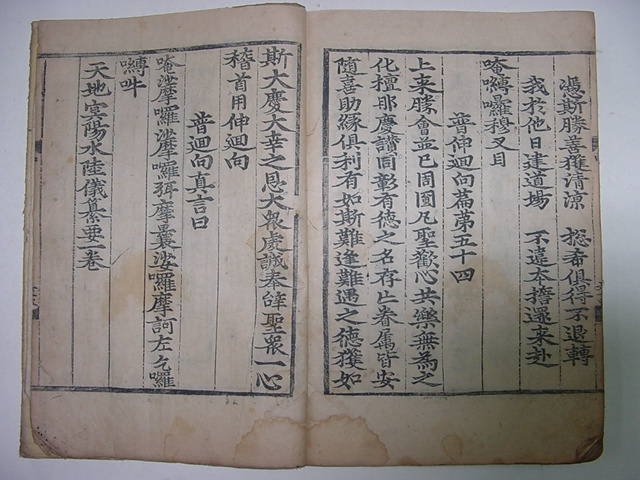 憑斯勝善獲清涼 揔希俱得不退轉
我於他日建道場 不違本擔還來赴
唵嚩囉穆叉目
普伸迴向篇第五十四
上来勝會並已周圓凡聖歡心共樂無為之
化檀那慶讃同彰有德之名存亡眷属皆安
随喜助緣俱利有如斯難逢難遇之德獲如
斯大慶大幸之恩大衆虔誠奉辝聖衆一心
稽首用伸迴向
普迴向真言曰
唵娑摩囉娑摩囉弭摩曩娑囉摩訶左乞囉
嚩吽
天地冥陽水陸儀纂要一卷